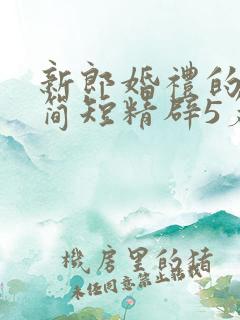 新郎婚禮的
简短精辟5
機房里的猪
未任同意禁止转载